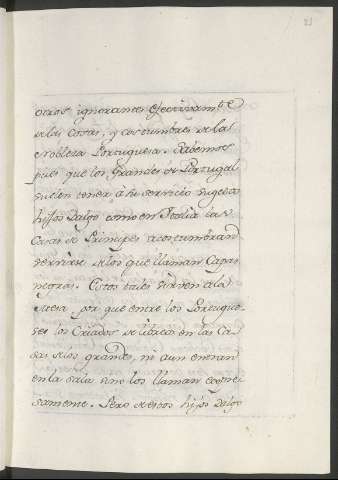 otros ignorantes efectivam.te
de las Cosas, y costumbres de la
Nobleza Portuguesa. Sabemos
pues que los Grandes de Portugal
suelen tener à su servicio sugetos
hijos Dalgo como en Italia las
Casas de Principes acostumbran
servirse de los que llaman Capas
negras. Estos tales sirven a la
Mesa por que entre los Portugue-
ses los Criados de librea en las Ca-
sas de los grandes, ni aun entran
en la sala sino los llaman expre-
samente. Pero de estos hijos Dalgo